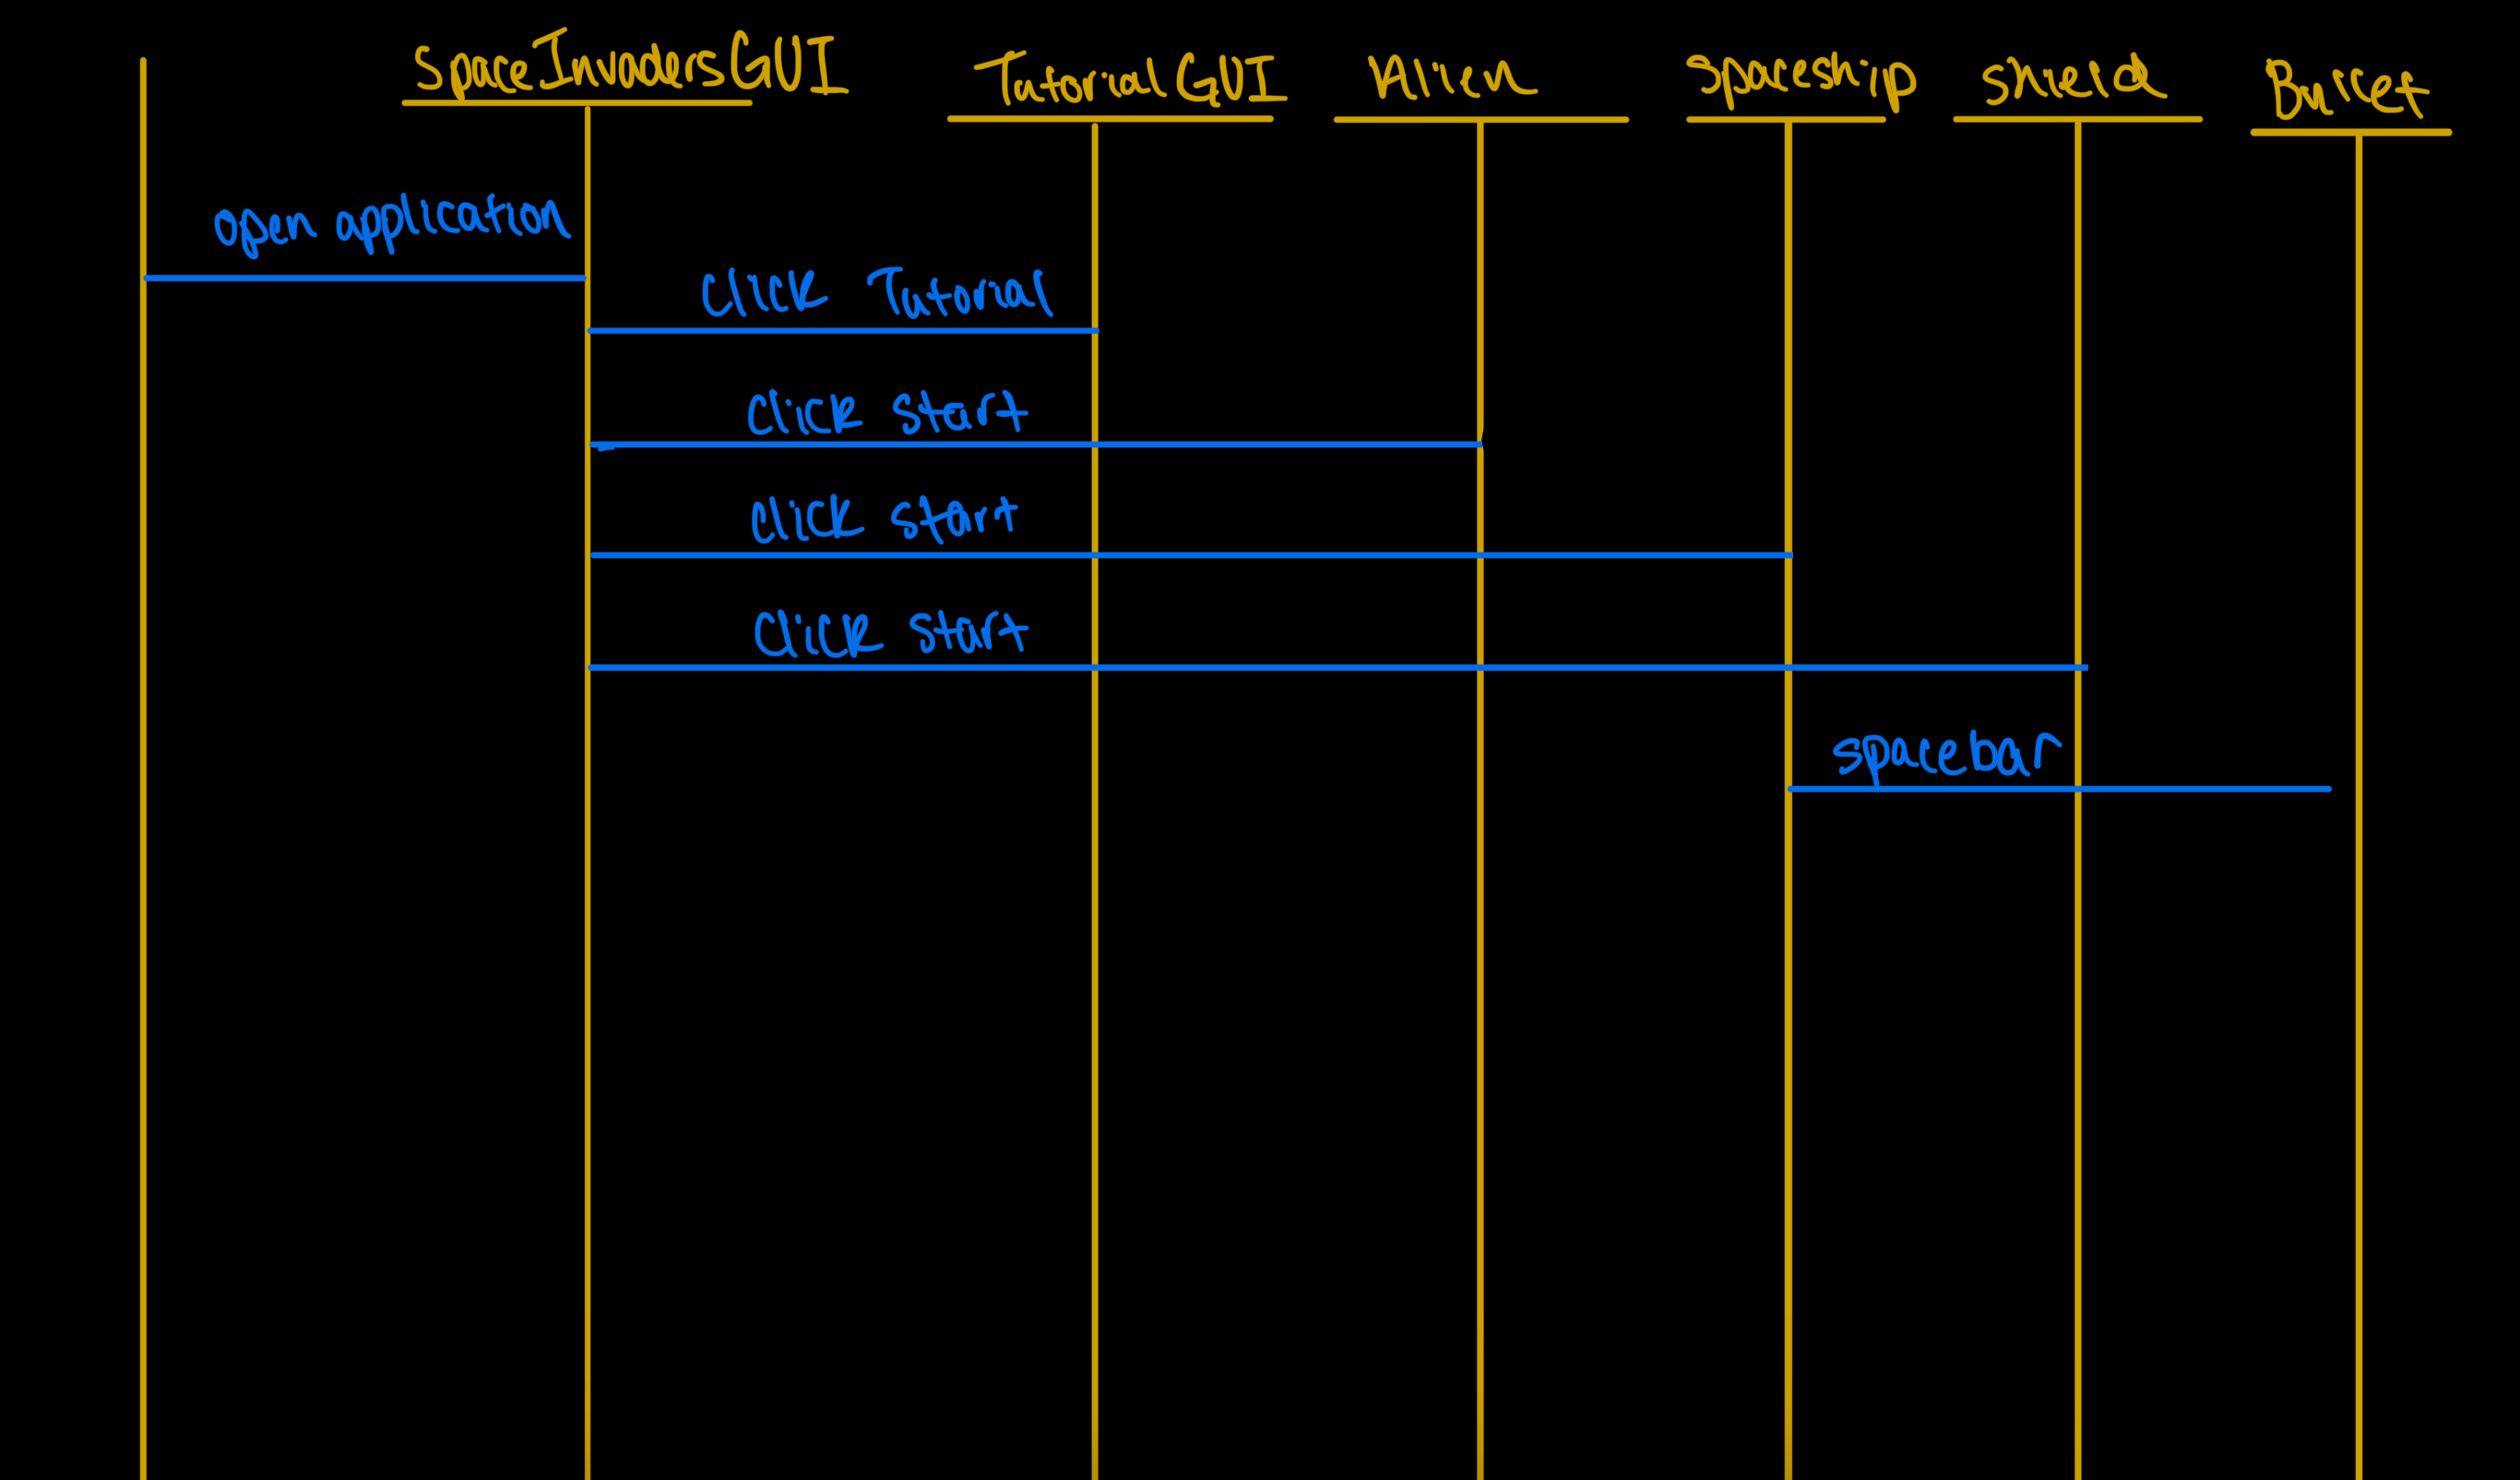 SpaceInvadersGUI TutorialGUI Alien Spaceship Shield Bullet
open application
Click Tutorial
Click start
Click start
Click start
spacebar